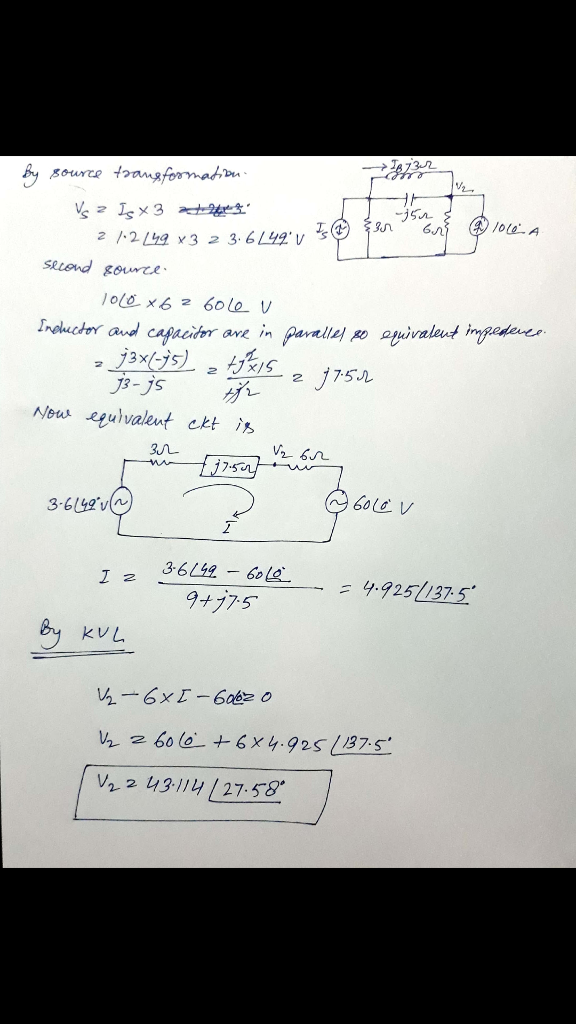 By source transformation.
→ I8 j3Ω
V2
Vs = Is×3
-j5Ω
Is 3Ω 6Ω 10∠0° A
= 1.2∠49 ×3 = 3.6∠49° V
second source.
10∠0° ×6 = 60∠0 V
Inductor and capacitor are in parallel so equivalent impedence.
= j3×(-j5) / j3-j5 = +j²×15 / +j2 = j7.5Ω
Now equivalent ckt is
3Ω j7.5Ω V2 6Ω
3.6∠49° V I 60∠0° V
I = 3.6∠49 - 60∠0° / 9+j7.5 = 4.925∠137.5°
By KVL
V2 - 6×I - 60∠0 = 0
V2 = 60∠0° + 6×4.925∠137.5°
V2 = 43.114∠27.58°